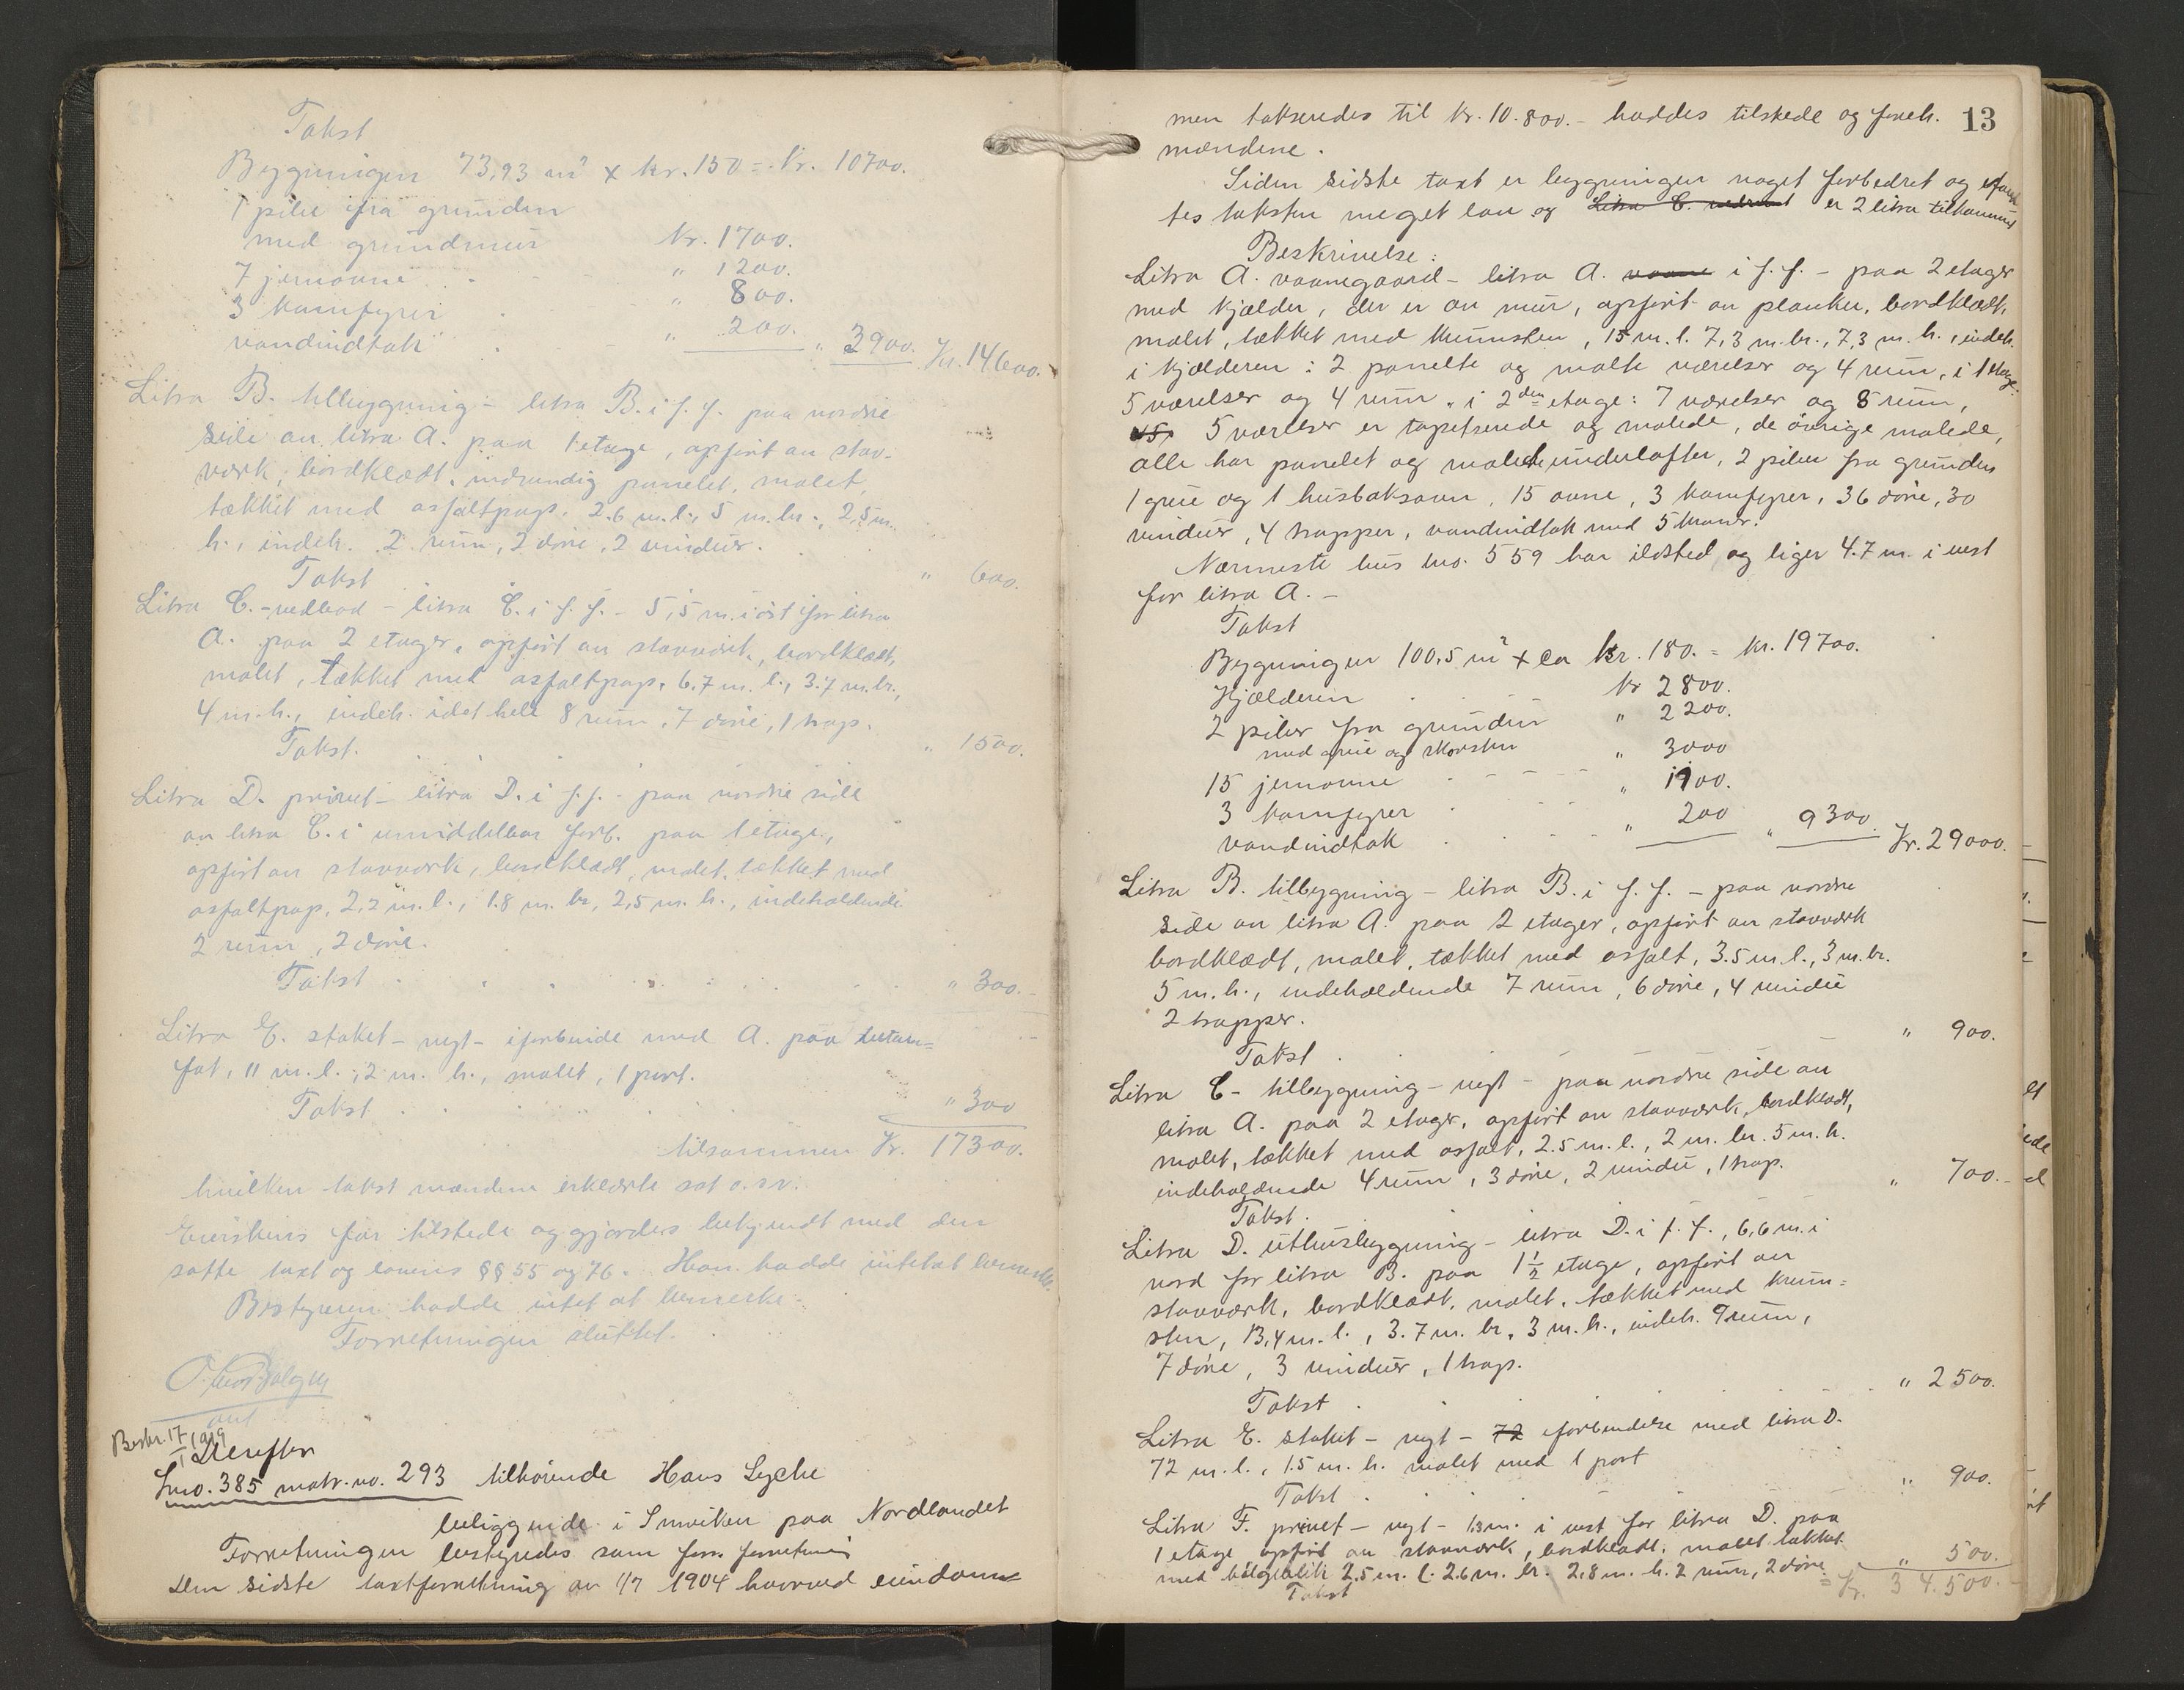 Takst
Bygningen 73,93 m² x kr. 150 = kr. 10700.
1 pibe fra grunden
med grundmur Kr. 1700.
7 jernovne " 1200.
3 komfyrer " 800.
vandindtak " 200. " 3900. Kr. 14600.
Litra B. tilbygning - litra B. i f. f. paa nordre
side av litra A. paa 1 etage, opført av stav-
værk, bordklædt, indvendig panelet, malet,
tækket med asfaltpap. 2.6 m. l., 5 m. br., 2,5 m.
h., indeh. 2 rum, 2 döre, 2 vinduer.
Takst " 600.
Litra C. - vedbod - litra C. i f. f. - 5,5 m. i øst for litra
A. paa 2 etager, opført av stavværk, bordklædt,
malet, tækket med asfaltpap, 6.7 m. l., 3.7 m. br.,
4 m. h., indeh. i det hele 8 rum, 7 döre, 1 trap.
Takst. " 1500.
Litra D. privet - litra D. i f. f. - paa nordre side
av litra C. i umiddelbar forb. paa 1 etage,
opført av stavværk, bordklædt, malet, tækket med
asfaltpap, 2,2 m. l., 1.8 m. br, 2,5 m. h., indeholdende
2 rum, 2 döre.
Takst " 300.
Litra E. staket - nyt - i forbinde med A. paa
fot, 11 m. l., 2 m. h., malet, 1 port.
Takst " 300
tilsammen Kr. 17300.
hvilken takst mændene erklærte sat o. s. v.
Eierskens far tilstede og gjordes bekjendt med den
satte taxt og lovens §§ 55 og 76. Han hadde intet at bemerke.
Bestyreren hadde intet at bemerke.
Forretningen sluttet.
Beskr. 17/1 1919
Derefter
Lno. 385 matr. no. 293 tilhørende Hans Lyche
beliggende i Inviken paa Nordlandet
Forretningen bestyredes som forr. forretning
Den sidste taxtforretning av 1/7 1904 hvorved eiendom-
13
men takseredes til kr. 10.800.- haddes tilstede og foreh.
mændene.
Siden sidste taxt er bygningen noget forbedret og ansaa-
tes taksten meget lav og Litra C. er 2 litra tilkommet
Beskrivelse:
Litra A. vaanegaard - litra A. vaane i f. f. - paa 2 etager
med kjælder, der er av mur, opført av planker, bordklædt,
malet, tækket med kunnsten, 15 m. l. 7,3 m. br., 7,3 m. h., indeh.
i kjælderen: 2 panelte og malte værelser og 4 rum, i 1 etage:
5 værelser og 4 rum, i 2den etage: 7 værelser og 8 rum,
5 værelser er tapetserede og malede, de övrige malede,
alle har panelet og malede underlofter, 2 piber fra grunden
1 grue og 1 husbaksovn, 15 ovne, 3 komfyrer, 36 döre, 30
vinduer, 4 trapper, vandindtak med 5 kraner.
Nærmeste hus lno. 559 har ildsted og ligger 4.7 m. i vest
for litra A. -
Takst
Bygningen 100,5 m² x ca kr. 180. = kr. 19700.
Kjælderen kr 2800.
2 piber fra grunden " 2200.
med grue og skorsten
15 jernovne " 3000
3 komfyrer " 1100.
vandindtak " 200 " 9300. Kr. 29000.
Litra B. tilbygning - litra B. i f. f. - paa nordre
side av litra A. paa 2 etager, opført av stavværk
bordklædt, malet, tækket med asfalt, 3.5 m. l., 3 m. br.
5 m. h., indeholdende 7 rum, 6 döre, 4 vindue
2 trapper.
Takst " 900.
Litra C - tilbygning - nyt - paa nordre side av
litra A. paa 2 etager, opført av stavværk, bordklædt,
malet, tækket med asfalt, 2.5 m. l., 2 m. br. 5 m. h.
indeholdende 4 rum, 3 döre, 2 vindue, 1 trap.
Takst. " 700.
Litra D. uthusbygning - litra D. i f. f., 6,6 m. i
nord for litra B. paa 1½ etage, opført av
stavværk, bordklædt, malet, tækket med kunn-
sten, 13,4 m. l., 3.7 m. br, 3 m. h., indeh. 9 rum,
7 döre, 3 vinduer, 1 trap.
Takst " 2500.
Litra E. staket - nyt - 72 i forbindelse med litra D.
72 m. l., 1.5 m. h. malet med 1 port
Takst " 900.
Litra F. privet - nyt - 13 m. i vest for litra D. paa
1 etage opført av stavværk, bordklædt, malet tækket
med bölgeblik 2.5 m. l. 2.6 m. br. 2.8 m. h. 2 rum, 2 döre
Takst " 500.
= Kr. 34.500.-